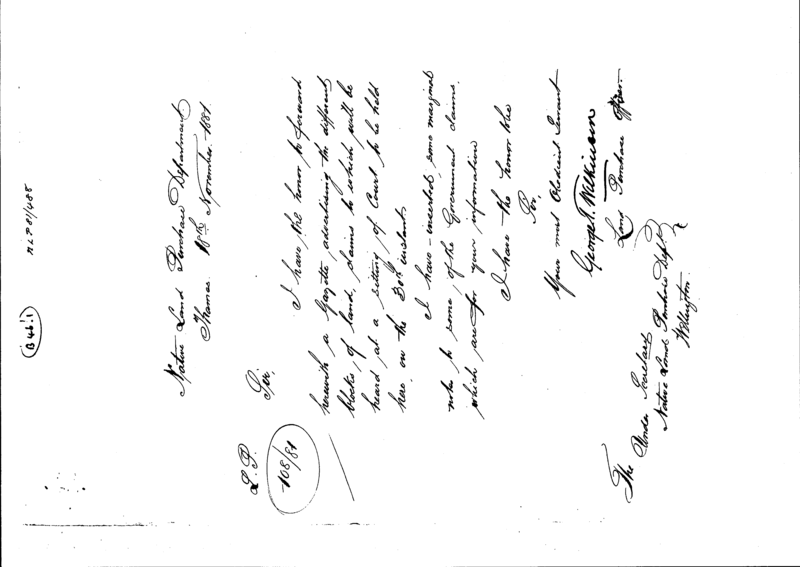 NLP 81/488
B46.1
Native Land Purchase Department
Thames 18th November 1881.
L.P.
108/81
Sir,
I have the honor to forward
herewith a Gazette advertising the different
blocks of land, claims to which will be
heard at a sitting of Court to be held
here on the 30th instant
I have inserted some marginal
notes to some of the Government claims
which are for your information
I have the honor to be
Sir,
Your most Obedient Servant
George T. Wilkinson
Land Purchase Officer.
The Under Secretary
Native Lands Purchase Dept.
Wellington.